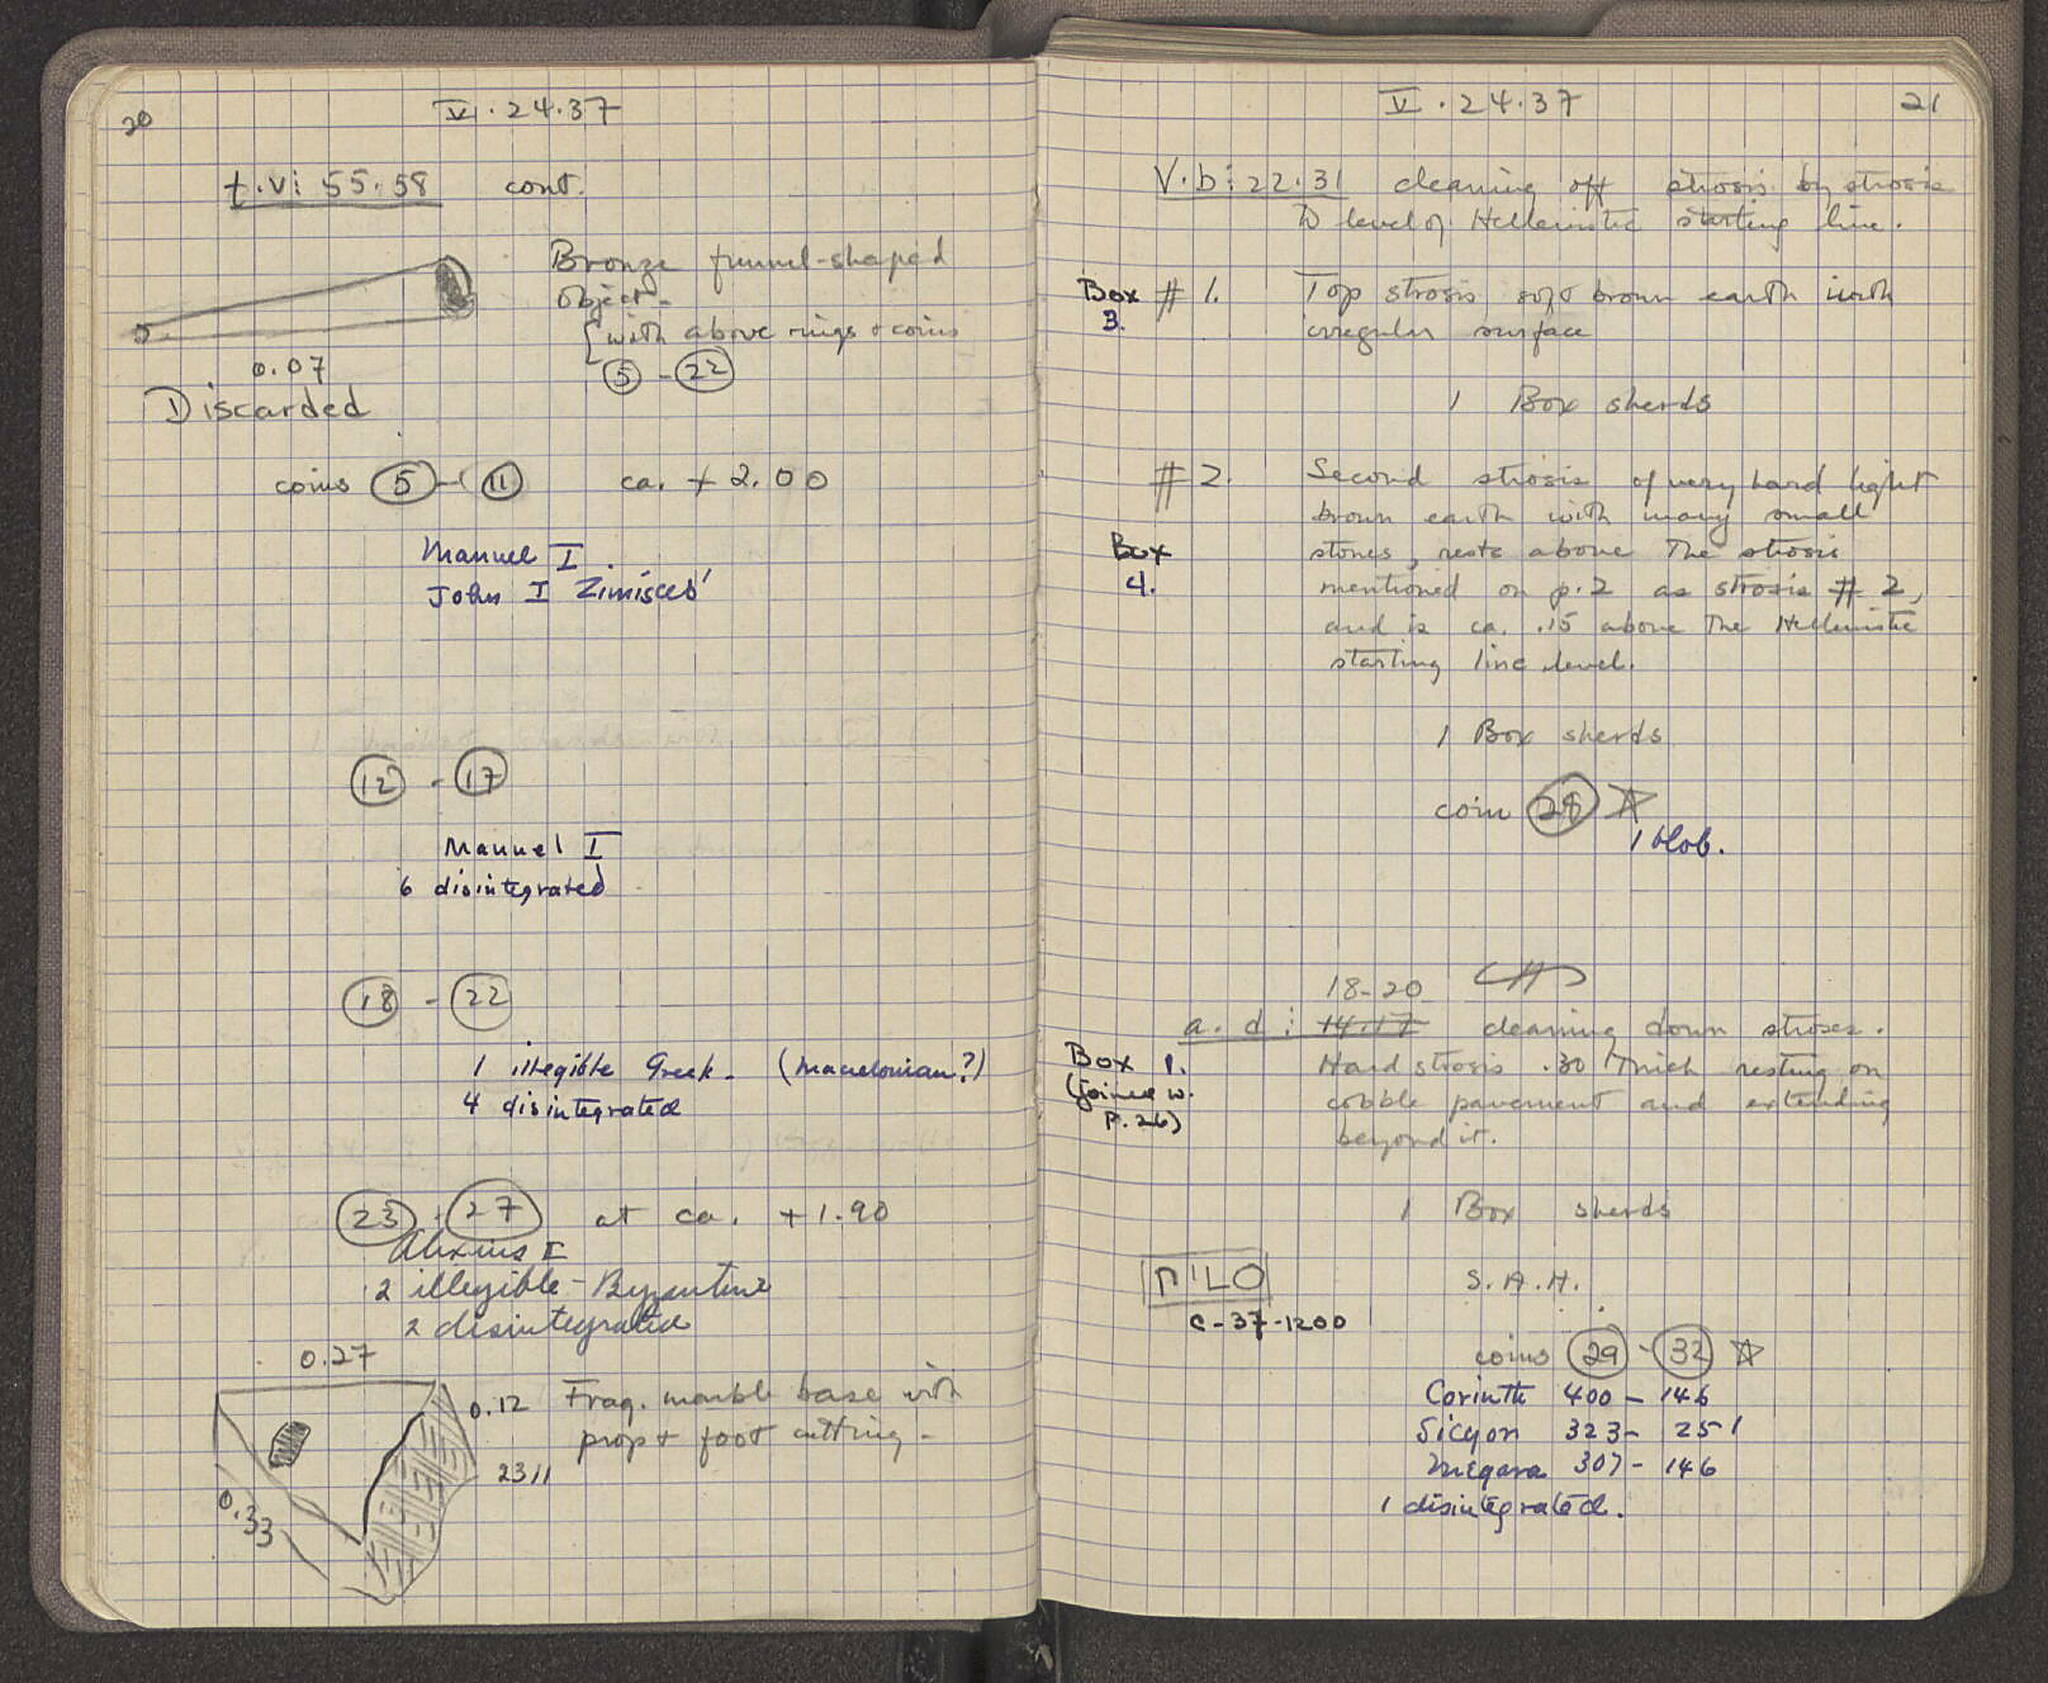 20
V.24.37
t.vi: 55.58 cont.
Bronze funnel-shaped
object-
{with above rings + coins
5 - 22
0.07
Discarded
coins 5 - 11 ca. + 2.00
Manuel I
John I Zimisces
12 - 17
Manuel I
6 disintegrated
18 - 22
1 illegible Greek- (Macedonian?)
4 disintegrated
23 - 27 at ca. +1.90
Alexius I
2 illegible - Byzantine
2 disintegrated
0.27
0.12 Frag. marble base with
prop + foot cutting -
2311
0.33
V.24.37
21
V.b: 22.31 cleaning off strosis by strosis
to level of Hellenistic starting line.
Box # 1. Top strosis soft brown earth with
3. irregular surface
1 Box sherds
# 2. Second strosis of very hard light
brown earth with many small
Box stones, rests above the strosis
4. mentioned on p.2 as strosis # 2,
and is ca. .15 above the Hellenistic
starting line level.
1 Box sherds
coin 28 ☆
1 blob.
18-20
a. d: 14.17 cleaning down stroses.
Box 1. Hard strosis .30 thick resting on
(joined w. cobble pavement and extending
P. 26) beyond it.
1 Box sherds
S.A.H.
C-37-1200
coins 29 - 32 ☆
Corinth 400 - 146
Sicyon 323 - 251
Megara 307 - 146
1 disintegrated.